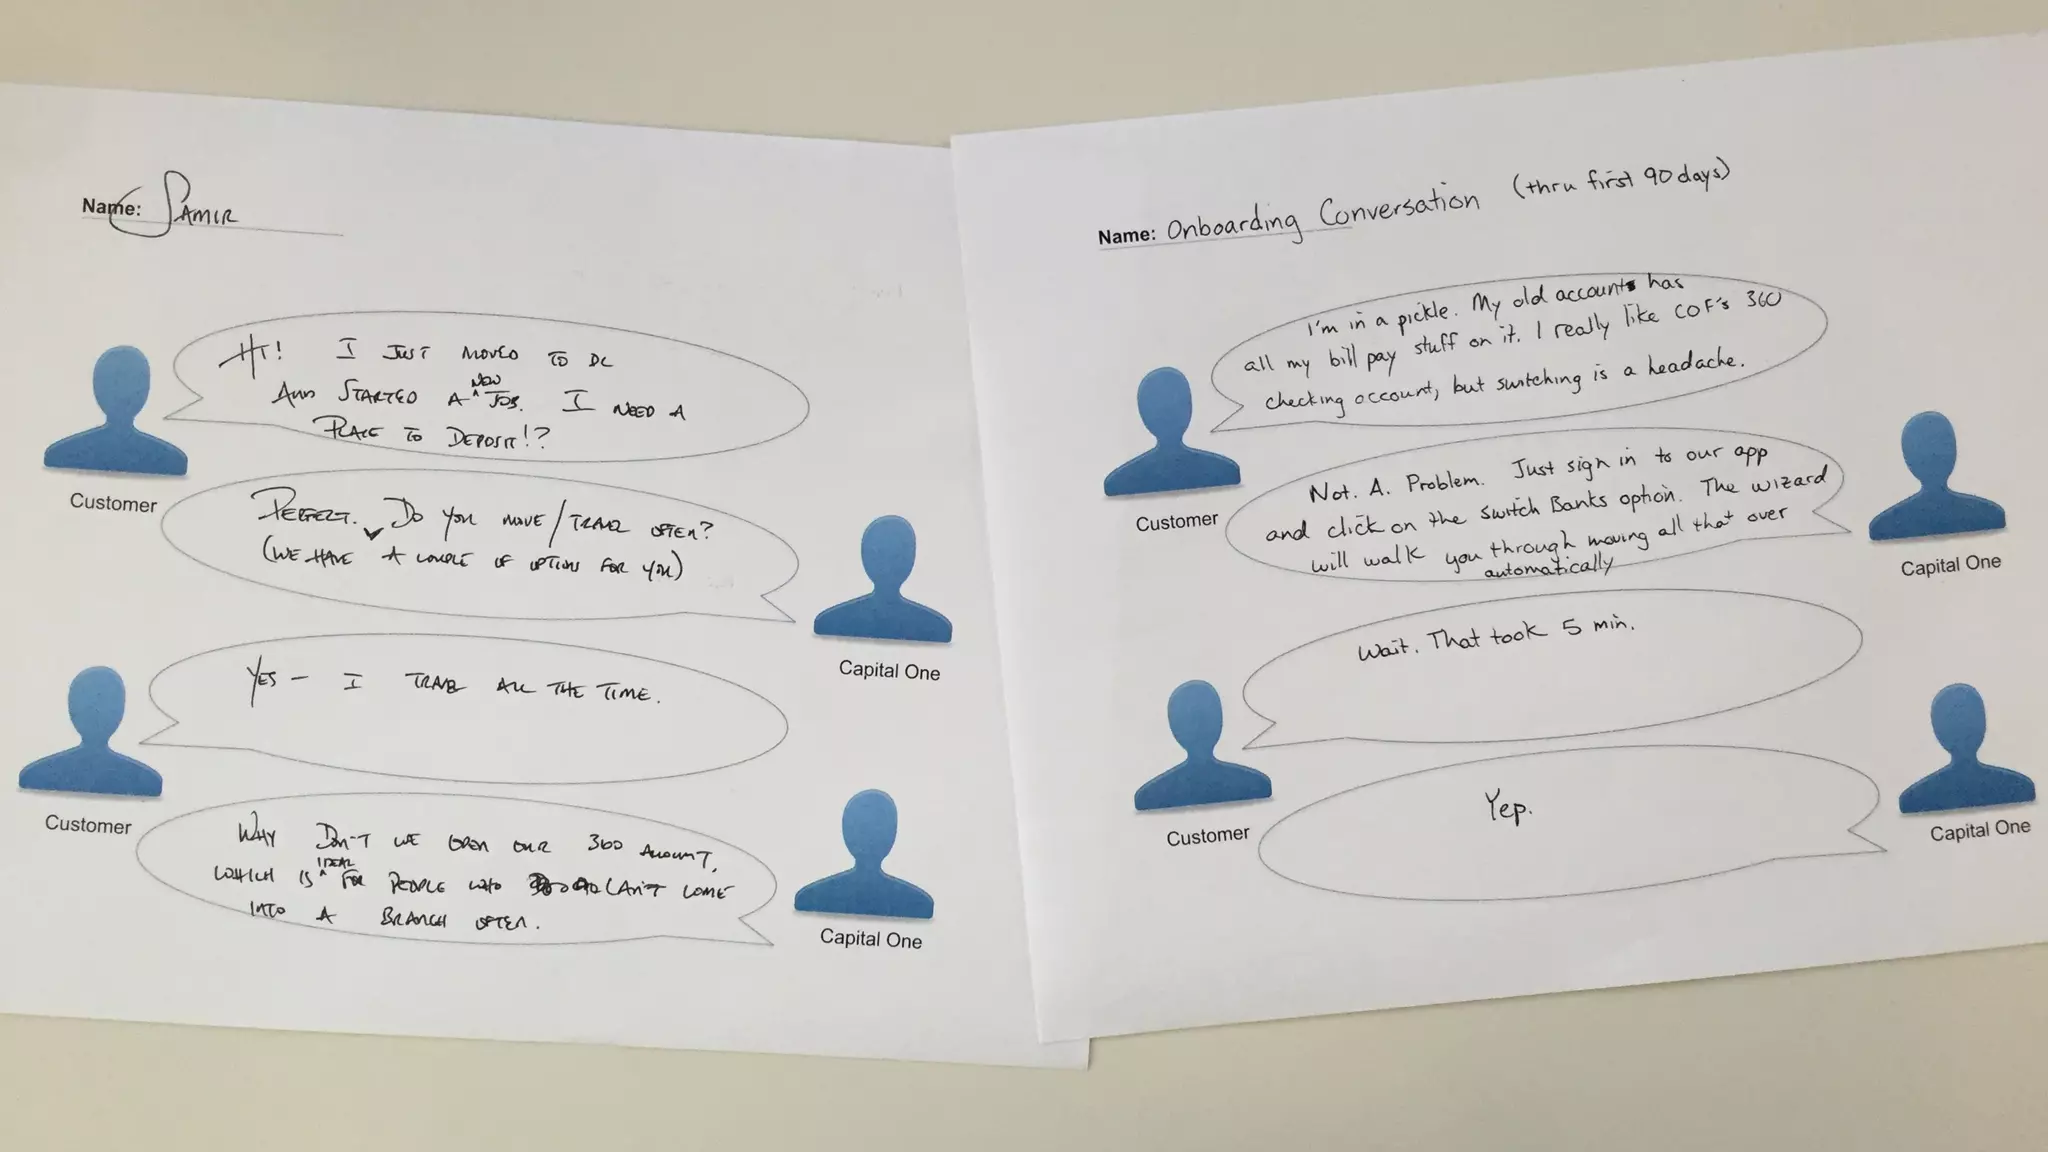 Name: SAMIR
HI! I JUST MOVED TO DC
AND STARTED A ^NEW JOB. I NEED A
PLACE TO DEPOSIT!?
Customer
PERFECT. DO YOU MOVE/TRAVEL OFTEN?
(WE HAVE A COUPLE OF OPTIONS FOR YOU)
Capital One
YES – I TRAVEL ALL THE TIME.
Customer
WHY DON'T WE OPEN OUR 360 ACCOUNT,
WHICH IS ^IDEAL FOR PEOPLE WHO CAN'T COME
INTO A BRANCH OFTEN.
Capital One
Name: Onboarding Conversation (thru first 90 days)
I'm in a pickle. My old accounts has
all my bill pay stuff on it. I really like COF's 360
checking account, but switching is a headache.
Customer
Not. A. Problem. Just sign in to our app
and click on the switch Banks option. The wizard
will walk you through moving all that over
automatically
Capital One
Wait. That took 5 min.
Customer
Yep.
Capital One